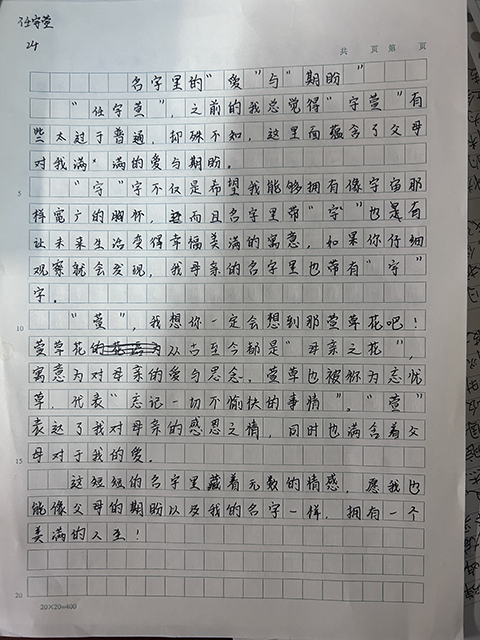 任宇萱
24
共 页 第 页
名字里的“爱”与“期盼”
“任宇萱”，之前的我总觉得“宇萱”有
些太过于普通，却殊不知，这里面蕴含了父母
对我满满的爱与期盼。
5
“宇”字不仅是希望我能够拥有像宇宙那
样宽广的胸怀，而且名字里带“宇”也是有
让未来生活变得幸福美满的寓意，如果你仔细
观察就会发现，我母亲的名字里也带有“宇”
字。
10
“萱”，我想你一定会想到那萱草花吧！
萱草花从古至今都是“母亲之花”，
寓意为对母亲的爱与思念，萱草也被称为忘忧
草，代表“忘记一切不愉快的事情”。“萱”
表达了我对母亲的感恩之情，同时也满含着父
15
母对于我的爱。
这短短的名字里藏着无数的情感，愿我也
能像父母的期盼以及我的名字一样，拥有一个
美满的人生！
20
20×20=400